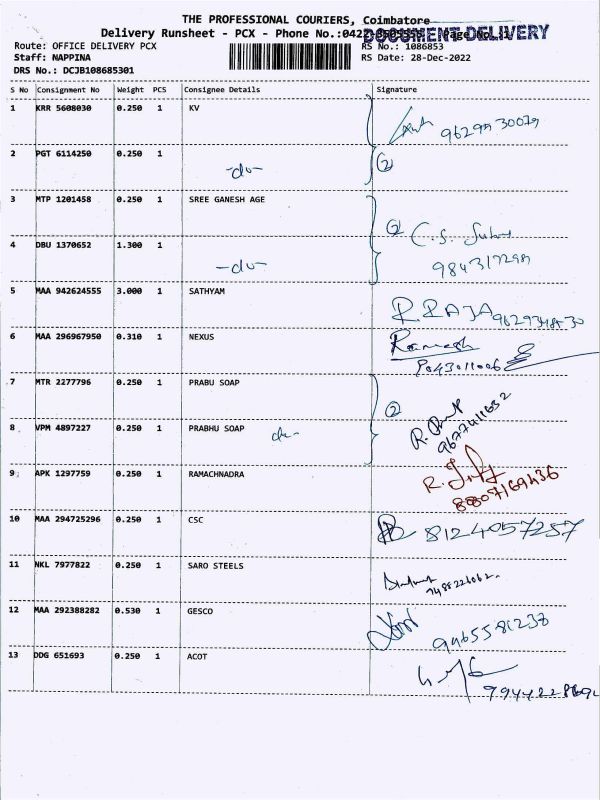 THE PROFESSIONAL COURIERS, Coimbatore
Delivery Runsheet - PCX - Phone No.:0422
DOCUMENT DELIVERY
Route: OFFICE DELIVERY PCX
RS No.: 1086853
Staff: NAPPINA
RS Date: 28-Dec-2022
DRS No.: DCJB108685301
S No Consignment No Weight PCS Consignee Details Signature
1 KRR 5608030 0.250 1 KV
2 PGT 6114250 0.250 1 -do- 2
3 MTP 1201458 0.250 1 SREE GANESH AGE
2 C.S.
4 DBU 1370652 1.300 1 -do-
5 MAA 942624555 3.000 1 SATHYAM R.RAJA
6 MAA 296967950 0.310 1 NEXUS Ramesh
7 MTR 2277796 0.250 1 PRABU SOAP 2
8 VPM 4897227 0.250 1 PRABHU SOAP do- R.
9677411632
9 APK 1297759 0.250 1 RAMACHNADRA R.
8807169436
10 MAA 294725296 0.250 1 CSC 8124057257
11 NKL 7977822 0.250 1 SARO STEELS
12 MAA 292388282 0.530 1 GESCO
13 DDG 651693 0.250 1 ACOT